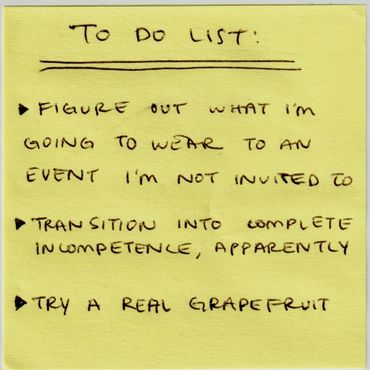 TO DO LIST:
▸ FIGURE OUT WHAT I'M
GOING TO WEAR TO AN
EVENT I'M NOT INVITED TO
▸ TRANSITION INTO COMPLETE
INCOMPETENCE, APPARENTLY
▸ TRY A REAL GRAPEFRUIT